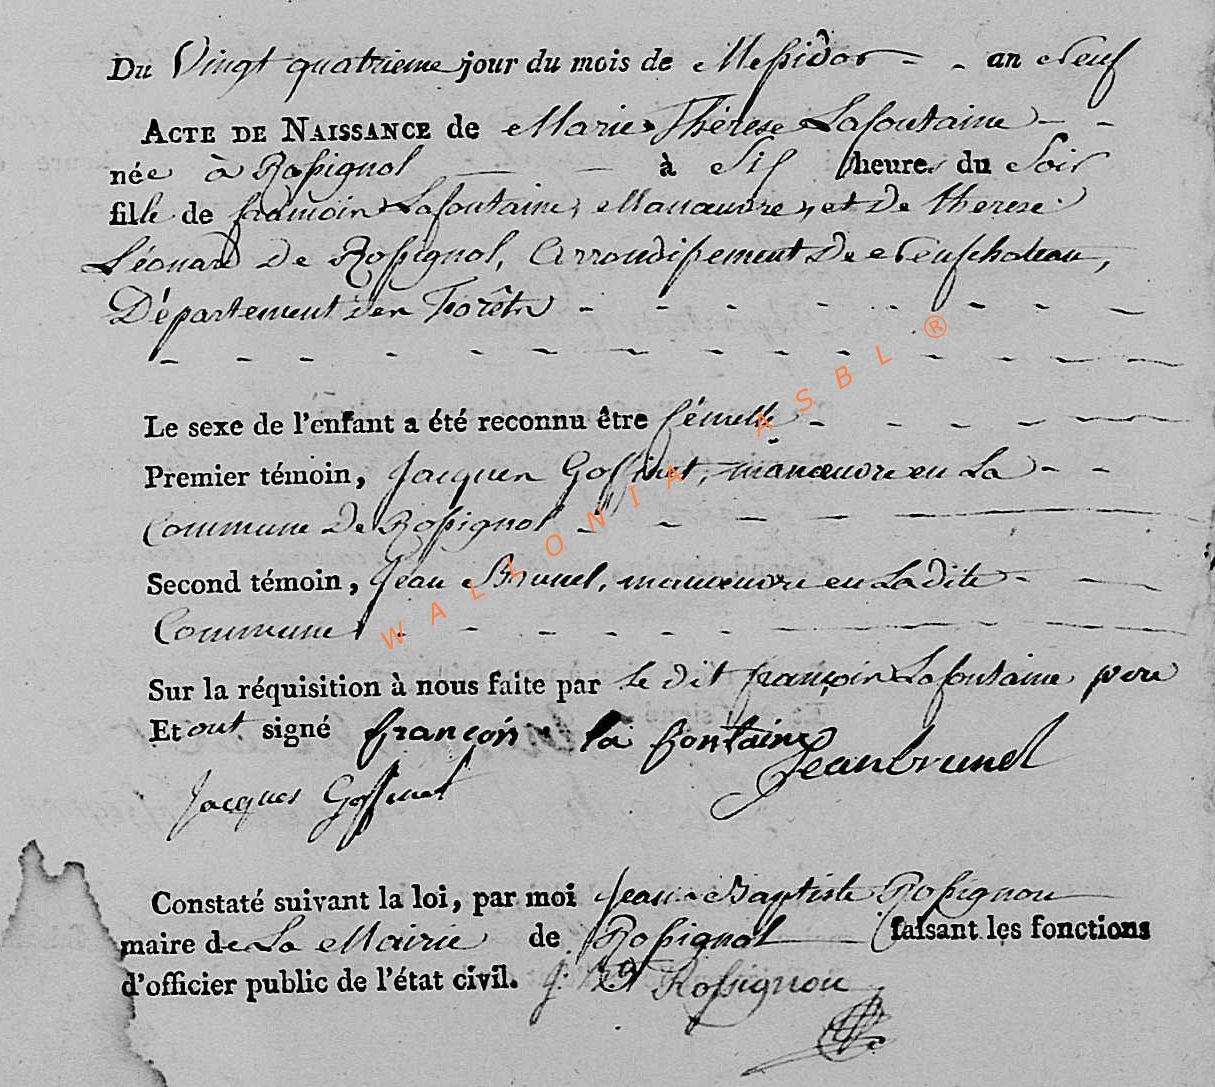 Du Vingt quatrieme jour du mois de Messidor an Neuf
ACTE DE NAISSANCE de Marie Thérese Lafontaine
née à Rossignol à Six heures du Soir
fille de françois Lafontaine, Manœuvre, et De therese
Léonard De Rossignol, Arrondissement De Neufchateau,
Département des Forêts
Le sexe de l'enfant a été reconnu être fémelle
Premier témoin, Jacques Goffinet, manœuvre en La
Commune De Rossignol
Second témoin, Jean Brunel, manœuvre en La dite
Commune
Sur la réquisition à nous faite par le dit françois Lafontaine pere
Et ont signé françois la fontaine
Jean brunel
Jacques Goffinet
Constaté suivant la loi, par moi Jean Baptiste Rossignon
maire de La Mairie de Rossignol faisant les fonctions
d'officier public de l'état civil. J. Bt Rossignon
WALLONIA ASBL ®